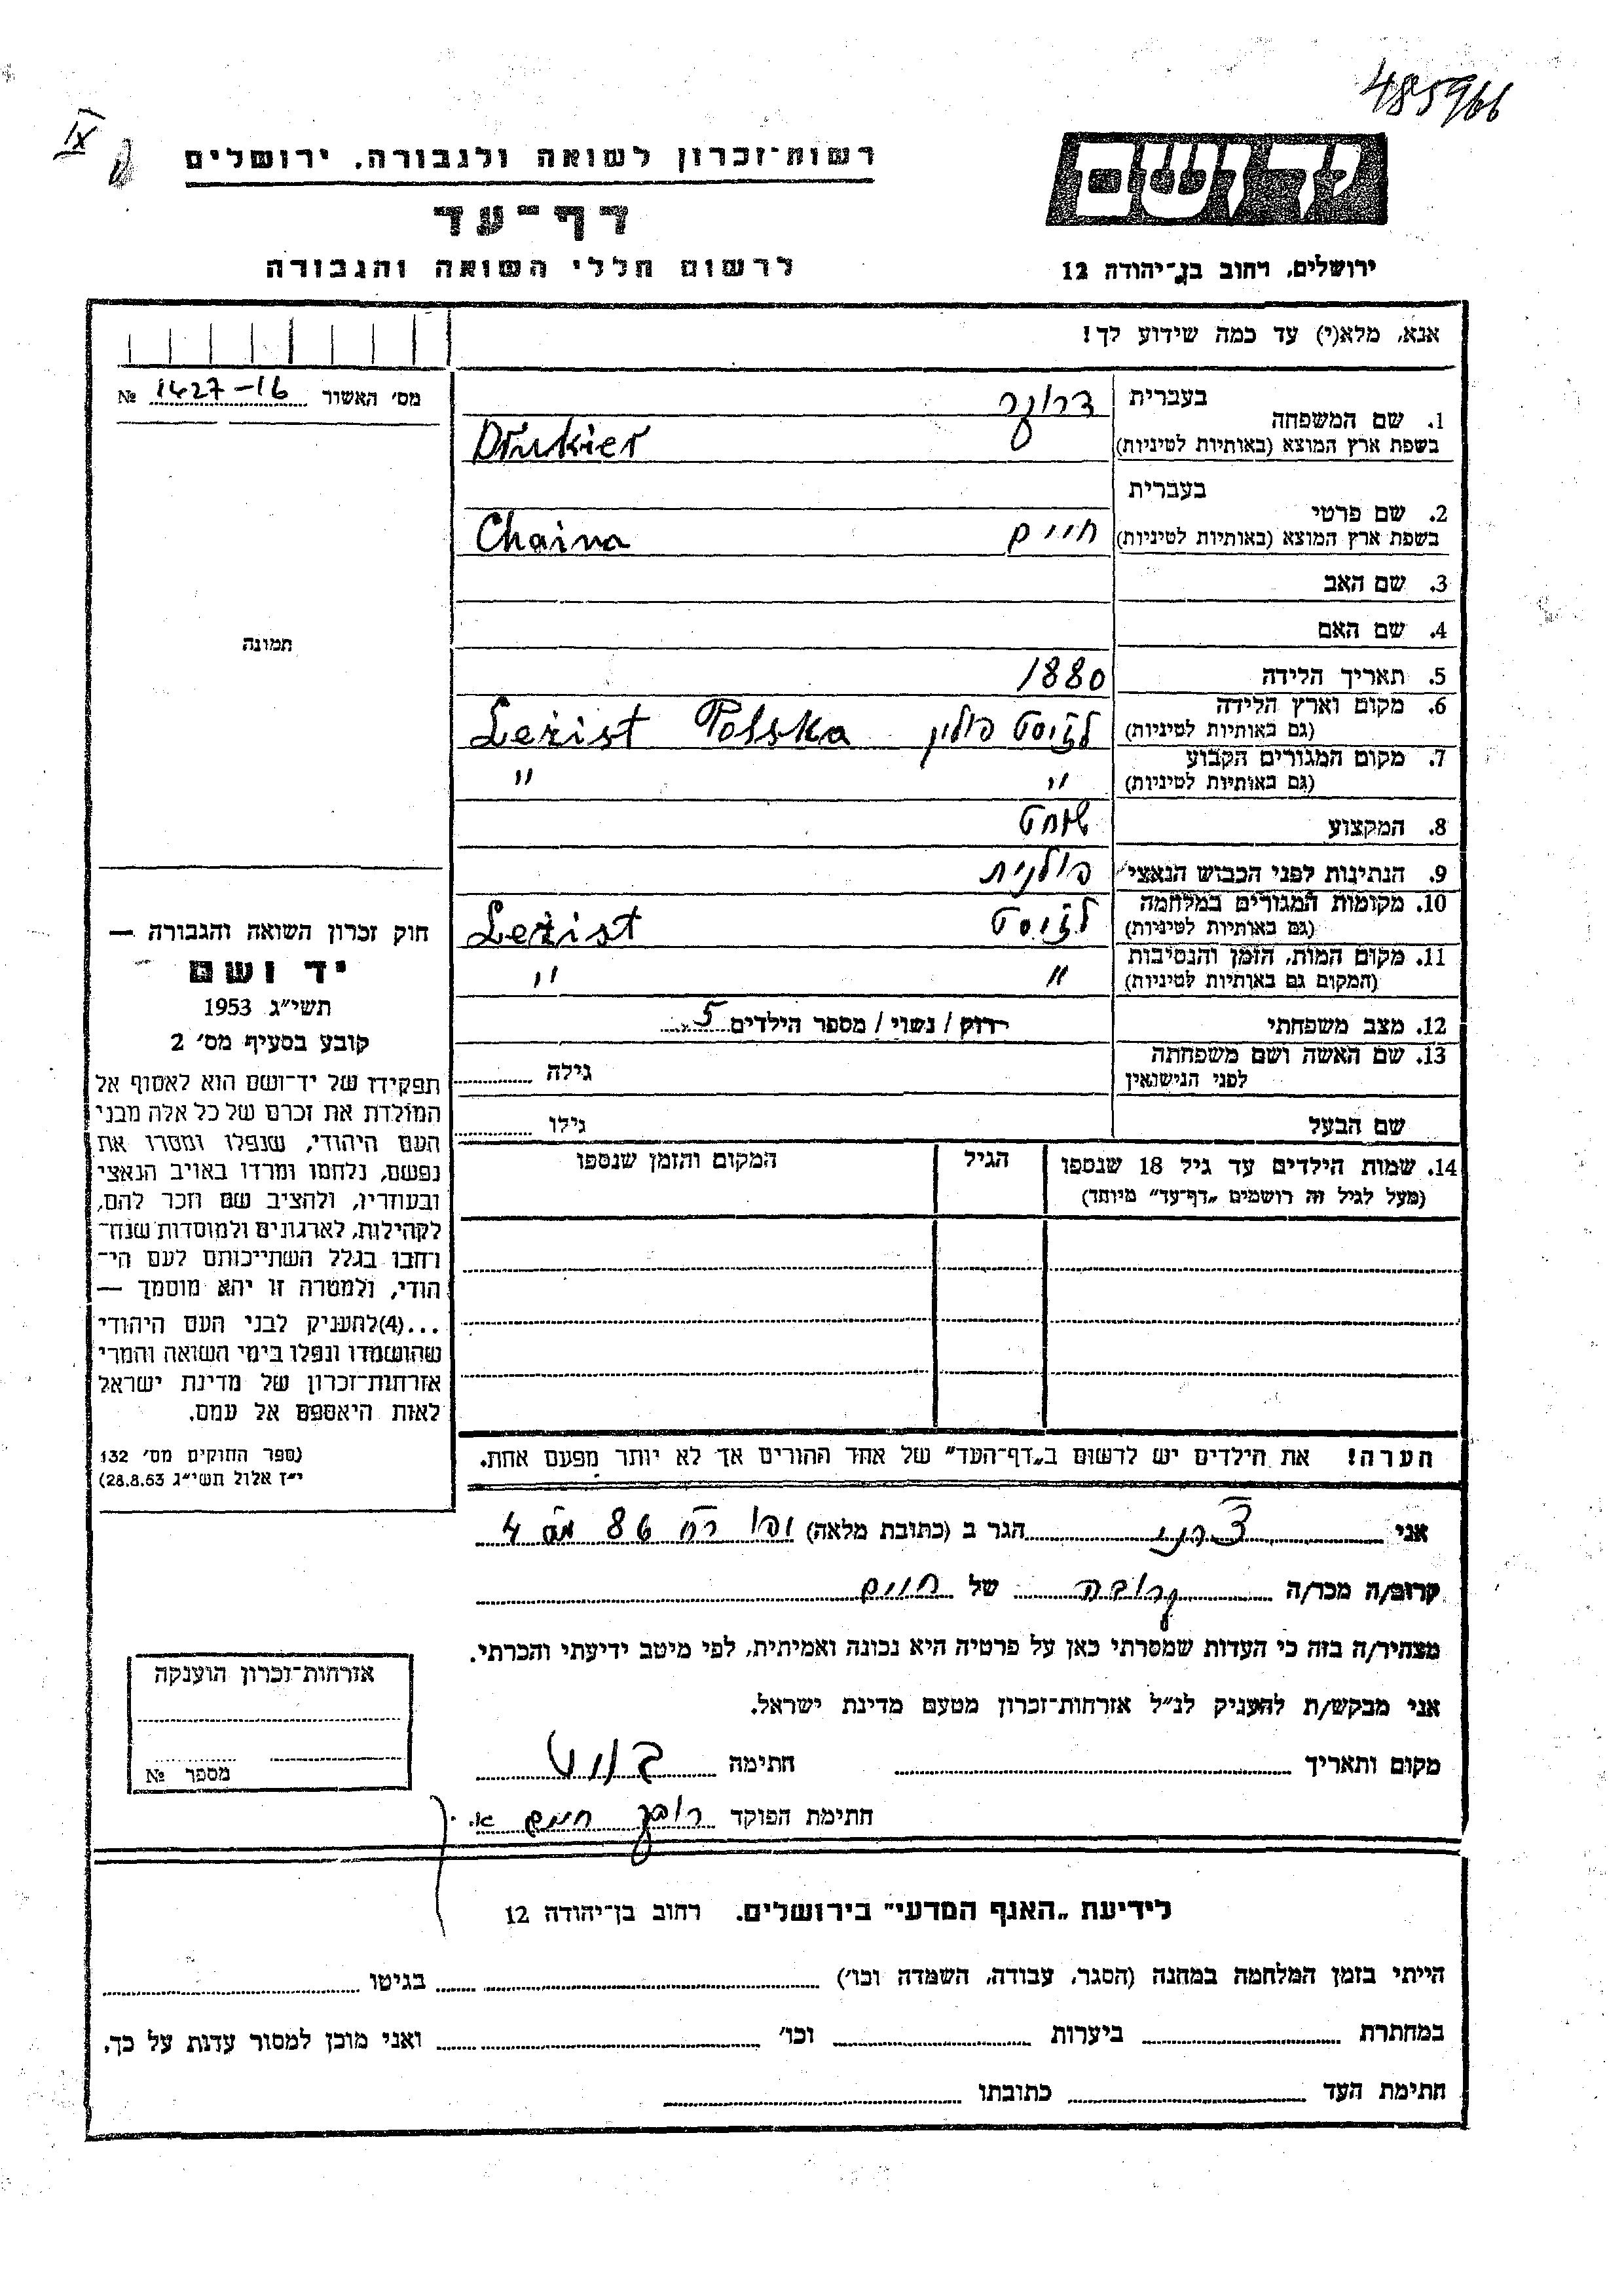 485966
IX
יד ושם
רשות־זכרון לשואה ולגבורה, ירושלים
דף־עד
לרשום חללי השואה והגבורה
ירושלים, רחוב בן־יהודה 12
אנא, מלא(י) עד כמה שידוע לך!
מס׳ האשור 1427-16 №
תמונה
1. שם המשפחה
בעברית דרוקר
בשפת ארץ המוצא (באותיות לטיניות) Drukier
2. שם פרטי
בעברית
בשפת ארץ המוצא (באותיות לטיניות) חיים Chaim
3. שם האב
4. שם האם
5. תאריך הלידה 1880
6. מקום וארץ הלידה
(גם באותיות לטיניות) פולין Leżist Polska
7. מקום המגורים הקבוע
(גם באותיות לטיניות) " "
8. המקצוע שוחט
9. הנתינות לפני הכבוש הנאצי פולנית
10. מקומות המגורים במלחמה
(גם באותיות לטיניות) Leżist
11. מקום המות, הזמן והנסיבות
(המקום גם באותיות לטיניות) " "
12. מצב משפחתי רווק / נשוי / מספר הילדים 5
13. שם האשה ושם משפחתה
לפני הנישואין גילה
שם הבעל גילו
14. שמות הילדים עד גיל 18 שנספו הגיל המקום והזמן שנספו
(מעל לגיל זה רושמים „דף־עד” מיוחד)
הערה! את הילדים יש לרשום ב„דף־העד” של אחד ההורים אך לא יותר מפעם אחת.
חוק זכרון השואה והגבורה —
יד ושם
תשי״ג 1953
קובע בסעיף מס׳ 2
תפקידו של יד־ושם הוא לאסוף אל
המולדת את זכרם של כל אלה מבני
העם היהודי, שנפלו ומסרו את
נפשם, נלחמו ומרדו באויב הנאצי
ובעוזריו, ולהציב שם וזכר להם,
לקהילות, לארגונים ולמוסדות שנח־
רחבו בגלל השתייכותם לעם הי־
הודי, ולמטרה זו יהא מוסמך —
...(4)להעניק לבני העם היהודי
שהושמדו ונפלו בימי השואה והמרי
אזרחות־זכרון של מדינת ישראל
לאות היאספם אל עמם.
(ספר החוקים מס׳ 132
י״ז אלול תשי״ג 28.8.53)
אני הגר ב (כתובת מלאה) 86 4
קרוב/ה מכר/ה קרובה של חיים
מצהיר/ה בזה כי העדות שמסרתי כאן על פרטיה היא נכונה ואמיתית, לפי מיטב ידיעתי והכרתי.
אני מבקש/ת להעניק לנ״ל אזרחות־זכרון מטעם מדינת ישראל.
מקום ותאריך חתימה
חתימת הפוקד חיים א.
אזרחות־זכרון הוענקה
מספר №
לידיעת „האגף המדעי” בירושלים. רחוב בן־יהודה 12
הייתי בזמן המלחמה במחנה (הסגר, עבודה, השמדה וכו׳) בגיטו
במחתרת ביערות וכו׳ ואני מוכן למסור עדות על כך.
חתימת העד כתובתו